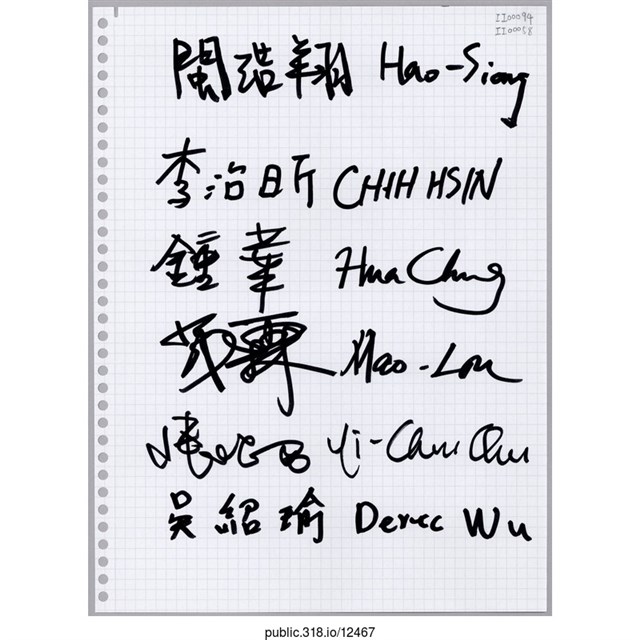 II00094
II00068
閩浩翔 Hao-Siang
李治昕 CHIH HSIN
鍾華 Hua Chung
Mao-Lin
Yi-Chun Chu
吳紹瑜 Derec Wu
public.318.io/12467